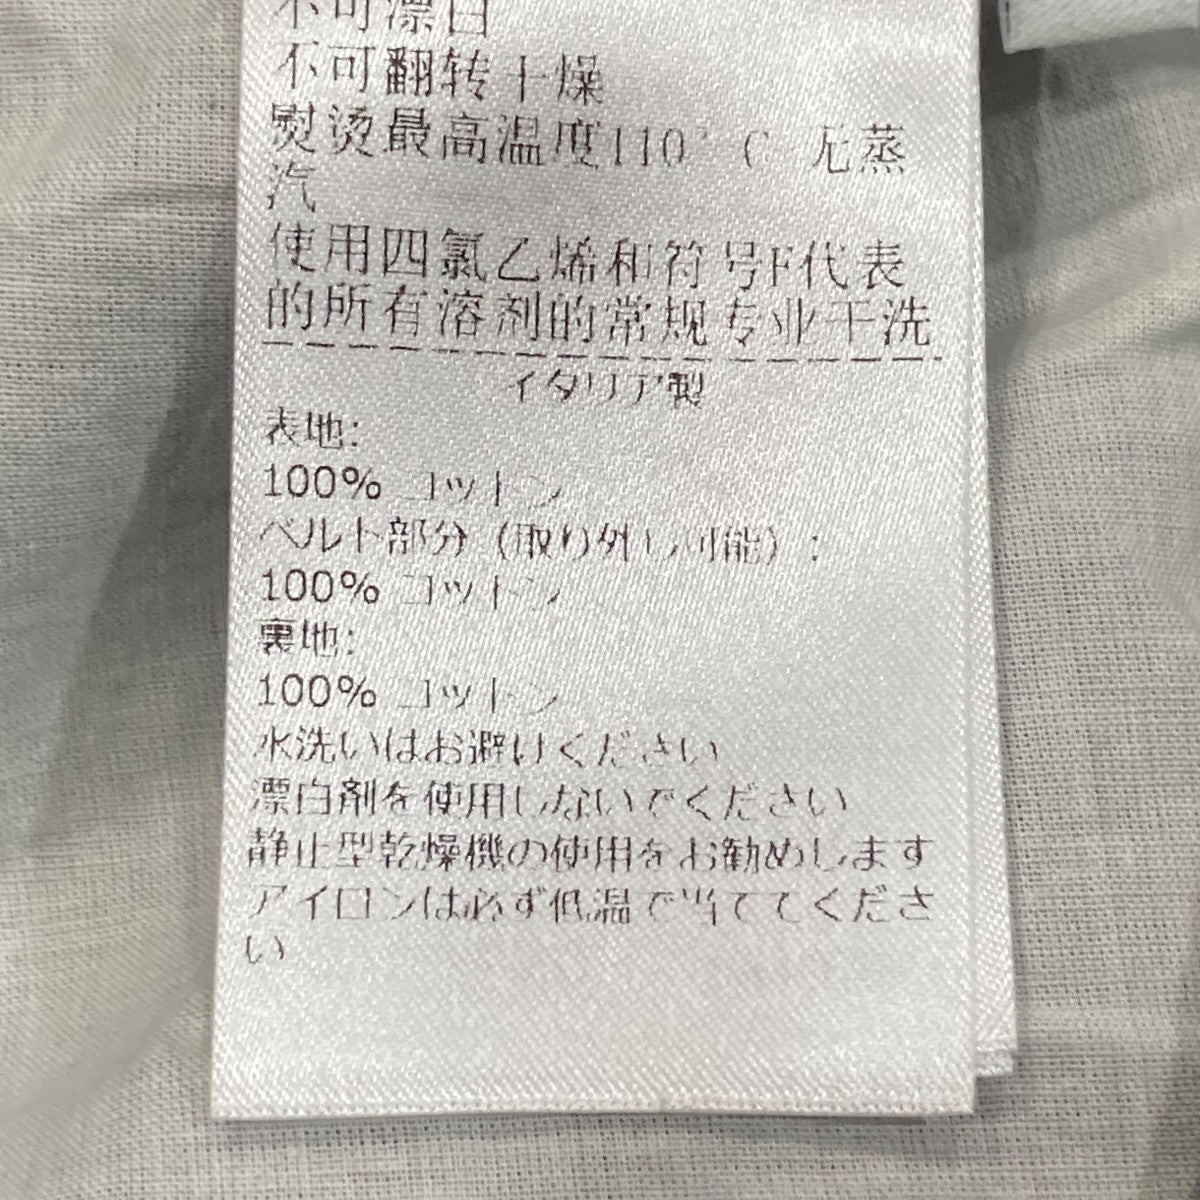 不可漂白
不可翻转干燥
熨烫最高温度110°C 无蒸
汽
使用四氯乙烯和符号F代表
的所有溶剂的常规专业干洗
イタリア製
表地:
100% コットン
ベルト部分(取り外し可能):
100% コットン
裏地:
100% コットン
水洗いはお避けください
漂白剤を使用しないでください
静止型乾燥機の使用をお勧めします
アイロンは必ず低温で当ててくださ
い